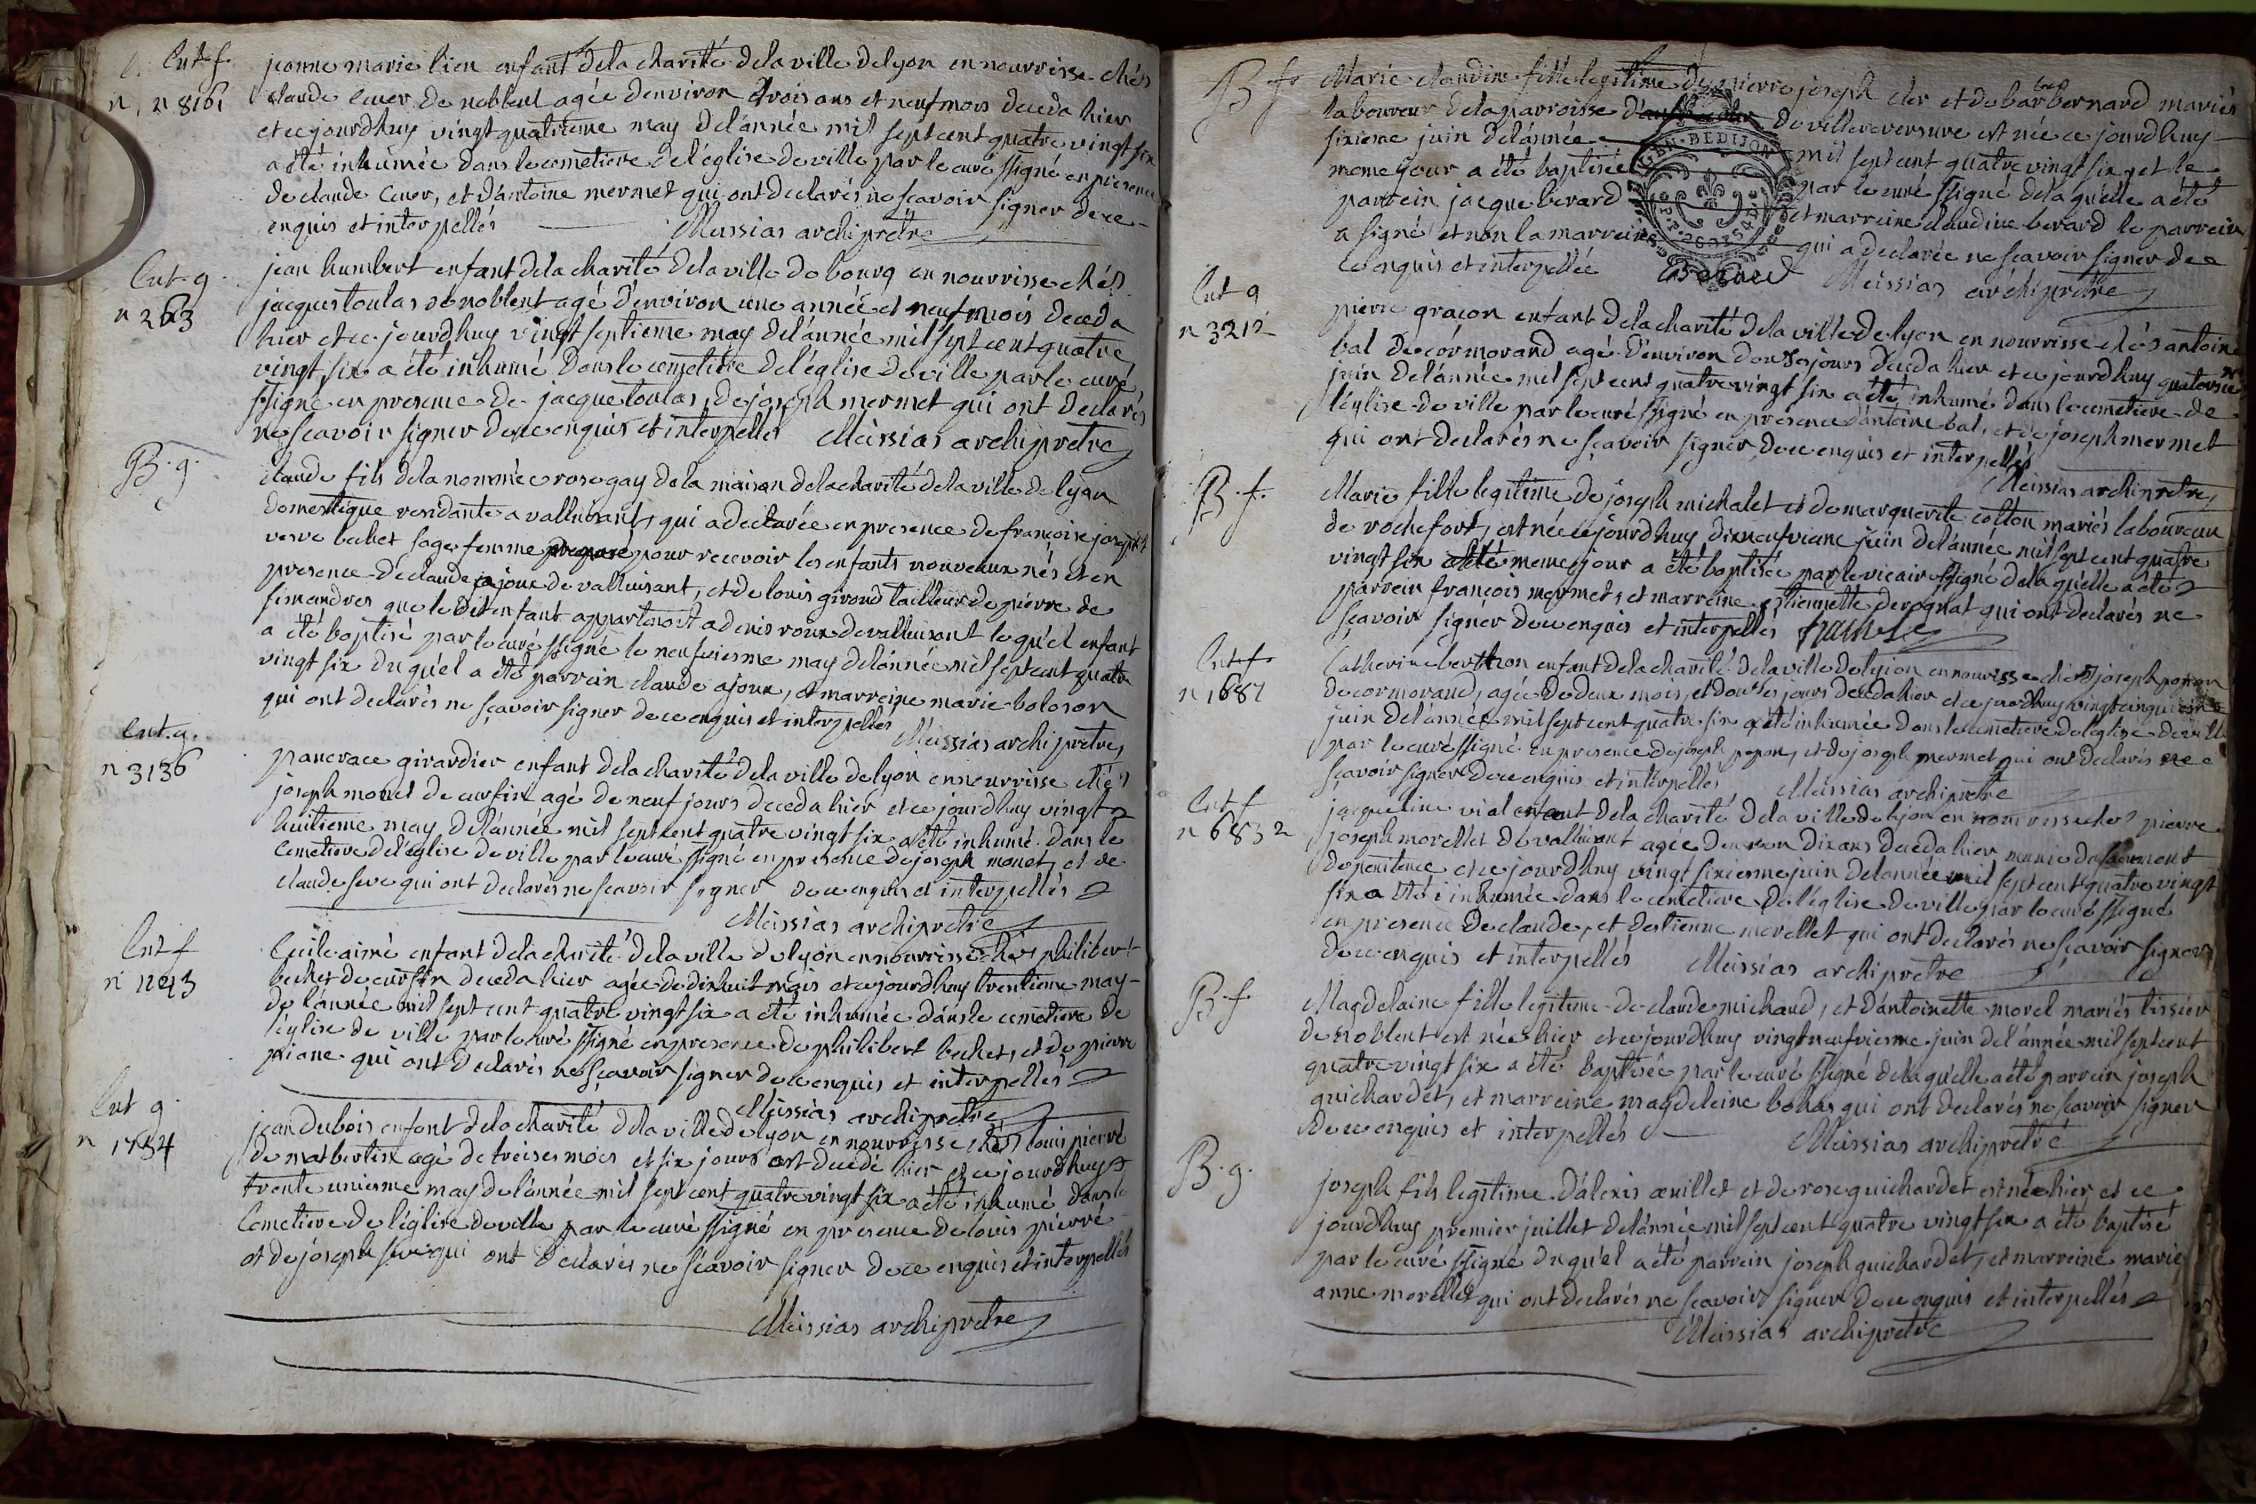 Ent. f.
n 8161
jeanne marie lien enfant dela charité dela ville de lyon en nourrisse chés
claude cuer de noblent agée denviron trois ans et neuf mois deceda hier
et cejourdhuy vingt quatrieme may delánnée mil sept cent quatre vingt six
a été inhumée dans le cemetiere de l'église de ville par le curé ssigné en presence
de claude cuer, et dántoine mermet qui ont declarés ne sçavoir signer de ce
enquis et interpellés
Meissias archiprêtre
Ent. g.
n 263
jean humbert enfant dela charité dela ville de bourg en nourrisse chés
jacques toulas de noblent agé d'environ une année et neuf mois deceda
hier et ce jourdhuy vingt septieme may delánnée mil sept cent quatre
vingt six a été inhumé dans le cemetiere de l'église de ville par le curé
ssigné en presence de jacque toulas, de joseph mermet qui ont declarés
ne sçavoir signer de ce enquis et interpellés Meissias archiprêtre
B. g.
claude fils dela nommée rose gay dela maison dela charité dela ville de lyon
domestique residante a valluisant, qui a declarée en presence de françoise joseph
veuve bechet sage femme pour recevoir les enfants nouveaux nés et en
presence de claude ajoux de valluisant, et de louis giroud tailleur de pierre de
simandres que le dit enfant appartenoit a denis roux de valluisant le quel enfant
a été baptisé par le curé ssigné le neufvieme may delánnée mil sept cent quatre
vingt six du quel a été parrein claude ajoux, et marreine marie boloson
qui ont declarés ne sçavoir signer de ce enquis et interpellés
Meissias archiprêtre
Ent. g.
n 3136
pancrace girardier enfant dela charité dela ville de lyon en nourrisse chés
joseph monet de cursin agé de neuf jours deceda hier et ce jourdhuy vingt
huitieme may delánnée mil sept cent quatre vingt six a été inhumé dans le
cemetiere de l'église de ville par le curé ssigné en presence de joseph monet, et de
claude seve qui ont declarés ne scavoir signer de ce enquis et interpellés
Meissias archiprêtre
Ent f
n 1293
Cecile aimé enfant dela charité dela ville de lyon en nourrisse chés philibert
bechet de cursin deceda hier agée de dixhuit mois et cejourdhuy trentieme may
de l'année mil sept cent quatre vingt six a été inhumée dans le cemetiere de
l'église de ville par le curé ssigné en presence de philibert bechet, et de pierre
piane qui ont declarés ne sçavoir signer de ce enquis et interpellés
Meissias archiprêtre
Ent g
n 1754
jean dubois enfant dela charité dela ville de lyon en nourrisse chés louis pierre
de mas bertin agé de treises mois et six jours est decedé hier et ce jourdhuy
trente unieme may de l'année mil sept cent quatre vingt six a été inhumé dans le
cemetiere de l'église de ville par le curé ssigné en presence de louis pierre
et de joseph seve qui ont declarés ne sçavoir signer de ce enquis et interpellés
Meissias archiprêtre
B f.
Marie claudine fille legitime de pierre joseph cler et de barbe bernard mariés
laboureur dela parroisse de villereversure est née ce jourdhuy
sixieme juin delánnée mil sept cent quatre vingt six et le
meme jour a été baptisée par le curé ssigné dela quelle a été
parrein jacque berard et marreine claudine berard le parrein
a signé et non la marreine qui a declarée ne sçavoir signer de
ce enquis et interpellée Berard Meissias archiprêtre
GEN. DE DIJON
Ent g
n 3212
pierre graçon enfant dela charité dela ville de lyon en nourrisse chés antoine
bal de cormorand agé d'environ douse jours deceda hier et ce jourdhuy quatorsieme
juin delánnée mil sept cent quatre vingt six a été inhumé dans le cemetiere de
l'église de ville par le curé ssigné en presence dántoine bal, et de joseph mermet
qui ont declarés ne sçavoir signer de ce enquis et interpellés
Meissias archiprêtre
B. f.
Marie fille legitime de joseph michalet et de marguerite colton mariés laboureur
de rochefort, est née ce jourdhuy dixneufvieme juin delánnée mil sept cent quatre
vingt six meme jour a été baptisée par le vicaire ssigné dela quelle a été
parrein françois mermet, et marreine etiennette derognat qui ont declarés ne
sçavoir signer de ce enquis et interpellés
Ent. f.
n 1687
Catherine berthon enfant dela charité dela ville de lyion en nourisse chés joseph popon
de cormorand, agée de deux mois, et douse jours deceda hier et ce jourdhuy vingt cinquieme
juin delánnée mil sept cent quatre six a été inhumée dans le cemetiere de l'église de ville
par le curé ssigné en presence de joseph popon, et de joseph mermet qui ont declarés ne
sçavoir signer de ce enquis et interpellés Meissias archiprêtre
Ent f
n 6832
jacqueline vial enfant dela charité dela ville de lyon en nourrisse chés pierre
joseph morellet de valluisant agée denviron dix ans deceda hier munie du sacrement
de penitence et ce jourdhuy vingt sixieme juin delannée mil sept cent quatre vingt
six a été inhumée dans le cemetiere de l'église de ville par le curé ssigné
en presence de claude, et destienne morellet qui ont declarés ne sçavoir signer
de ce enquis et interpellés Meissias archiprêtre
B. f.
Magdelaine fille legitime de claude michaud, et dántoinette morel mariés tissier
de noblent est née hier et ce jourdhuy vingt neufvieme juin del'année mil sept cent
quatre vingt six a été baptisée par le curé ssigné dela quelle a été parrein joseph
guichardet, et marreine magdeleine bohas qui ont declarés ne scavoir signer
de ce enquis et interpellés Meissias archiprêtre
B. g.
joseph fils legitime d'alexis œuillet et de rose guichardet est né hier et ce
jourdhuy premier juillet delánnée mil sept cent quatre vingt six a été baptisé
par le curé ssigné du quel a été parrein joseph guichardet, et marreine marie
anne morellet qui ont declarés ne scavoir signer de ce enquis et interpellés
Meissias archiprêtre